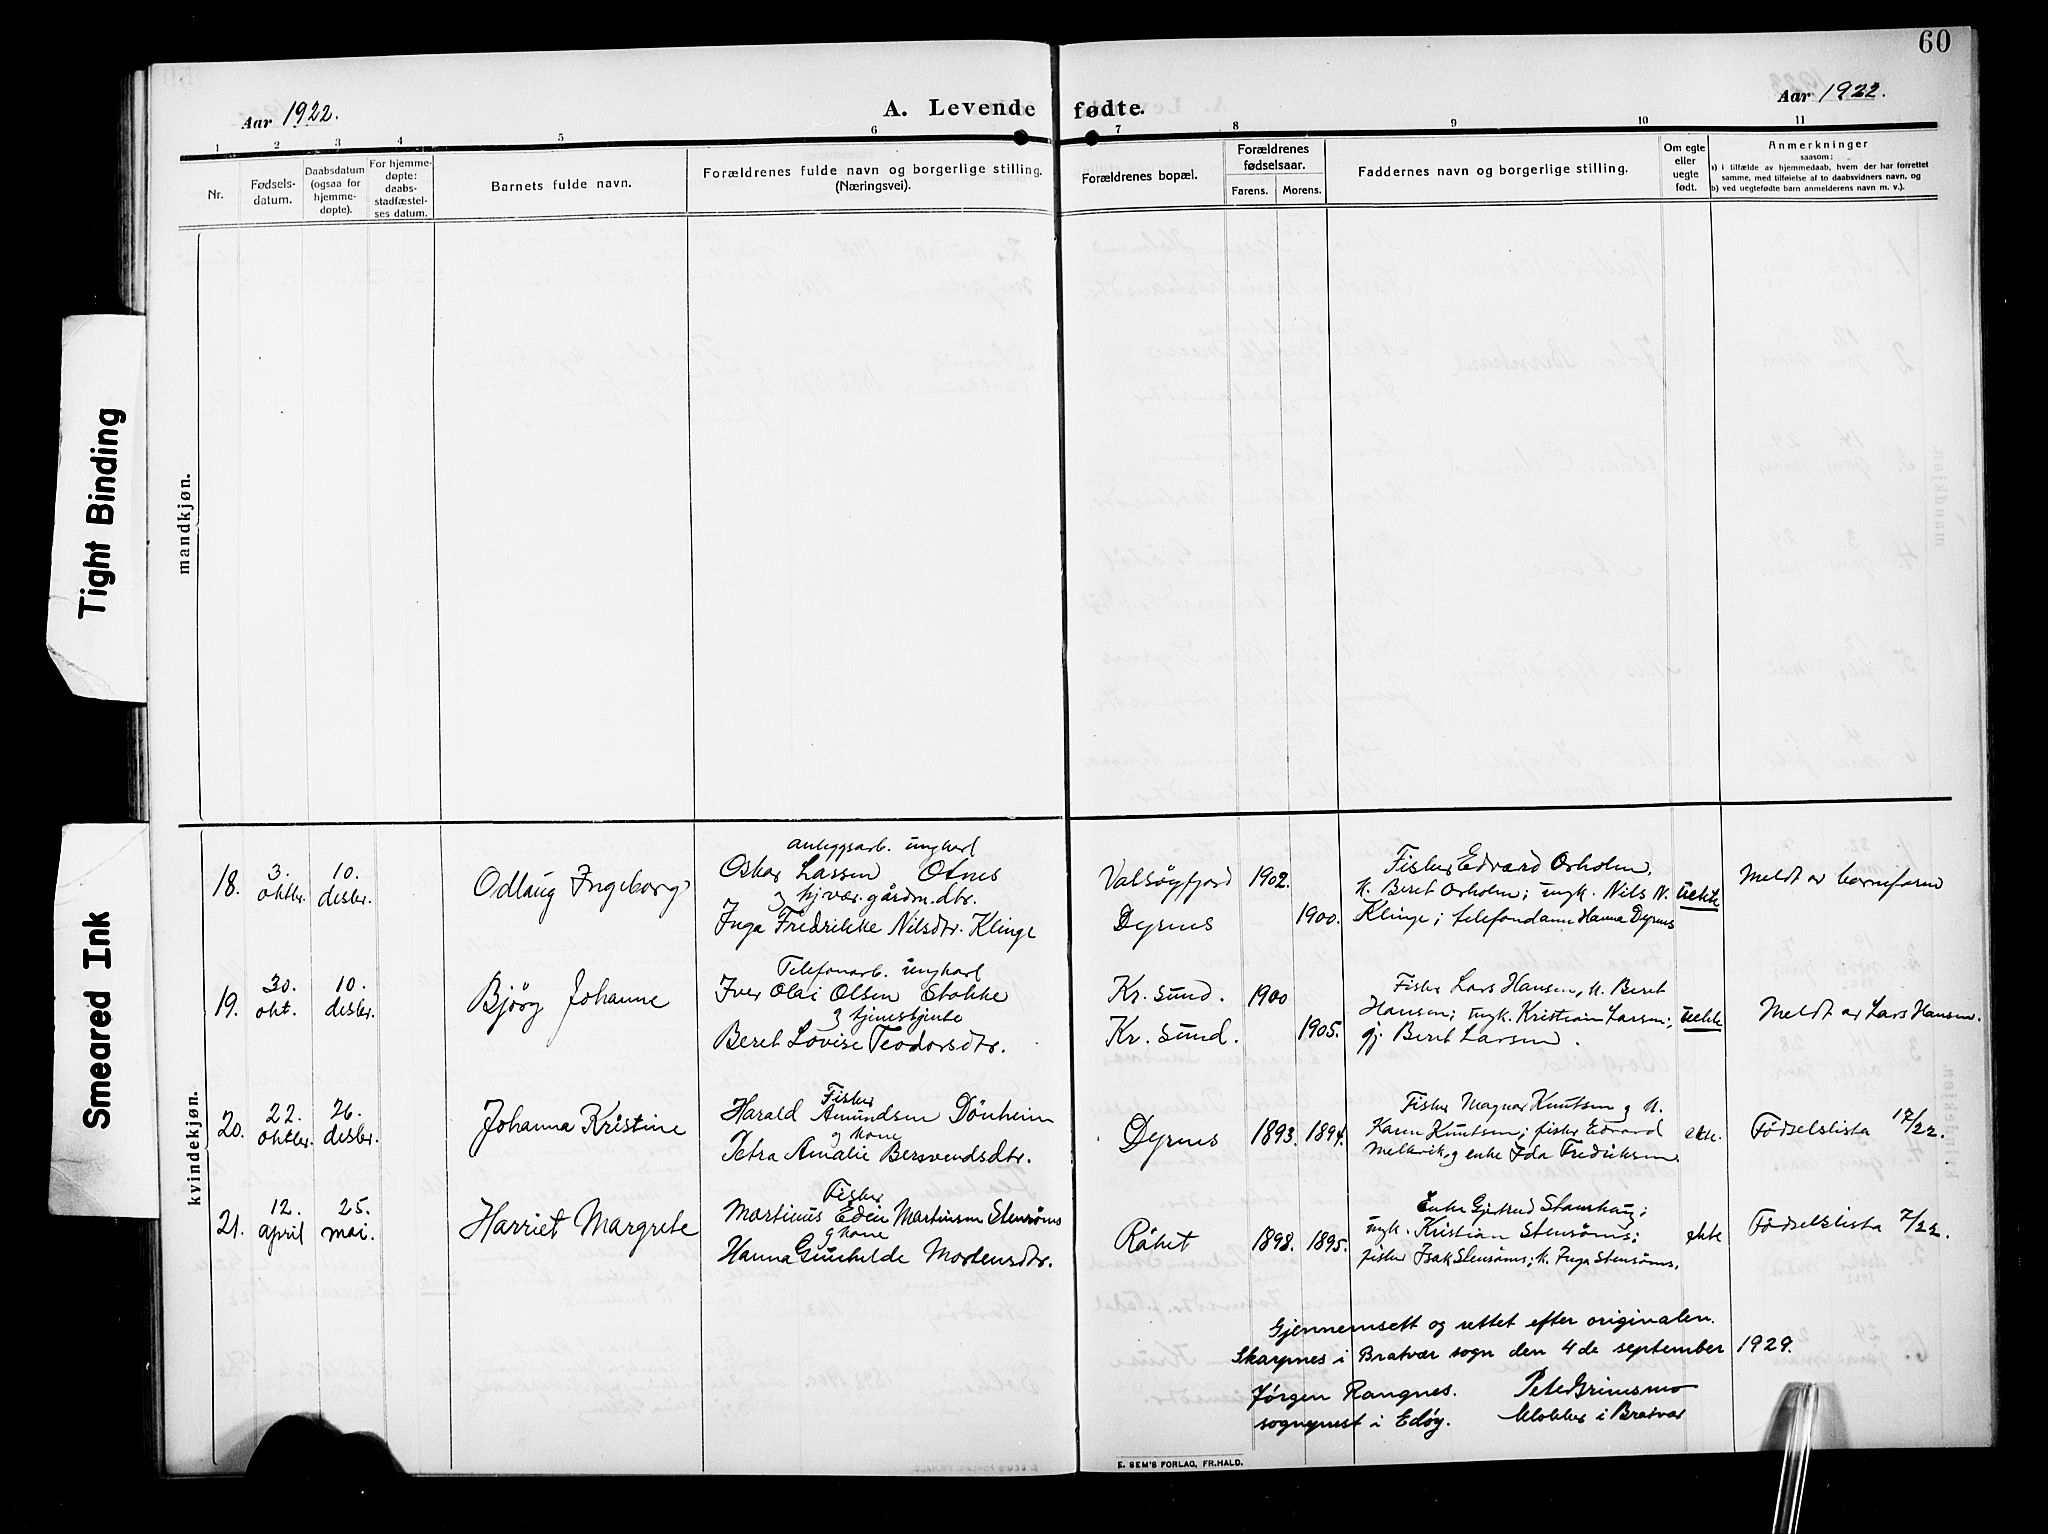 60
Aar 1922.
A. Levende fødte.
Aar 1922.
1 2 3 4 5 6 7 8 9 10 11
Nr.
Fødsels-
datum.
Daabsdatum
(ogsaa for
hjemme-
døpte).
For hjemme-
døpte:
daabs-
stadfæstel-
ses datum.
Barnets fulde navn.
Forældrenes fulde navn og borgerlige stilling.
(Næringsvei).
Forældrenes bopæl.
Forældrenes
fødselsaar.
Farens. Morens.
Faddernes navn og borgerlige stilling.
Om egte
eller
uegte
født.
Anmerkninger
saasom:
a) i tilfælde av hjemmedaab, hvem der har forrettet
samme, med tilføielse af to daabsvidners navn, og
b) ved uegtefødte barn anmelderens navn m. v.).
mandkjøn.
kvindekjøn.
18.
3.
oktbr.
10.
desbr.
Odlaug Ingeborg
anleggsarb. ungkarl
Oskar Lassen Otnes
og hjvær. gårdm.dtr.
Inga Fredrikke Nilsdtr. Klinge
Valsøyfjord 1902.
Dyrnes 1900.
Fisker Edvard Orholm,
k. Beret Orholm; ungk. Nils N.
Klinge; telefondame Hanna Dyrnes
uekte
Meldt av barnefaren
19.
30.
okt.
10.
desbr.
Bjørg Johanne
Telefonarb. ungkarl
Iver Olai Olsen Stokke
og tjenestjente
Beret Lovise Teodorsdtr.
Kr. sund. 1900
Kr. sund. 1905.
Fisker Lars Hansen, k. Beret
Hansen; ungk. Kristian Larsen;
gj. Beret Larsen.
uekte
Meldt av Lars Hansen.
20.
22.
oktbr.
26.
desbr.
Johanna Kristine
Fisker
Harald Amundsen Dønheim
og kone
Petra Amalie Bersvendsdtr.
Dyrnes 1893. 1894.
Fisker Magnar Knutsen og k.
Karen Knutsen; fisker Edvard
Melkvik, og enke Ida Fredriksen
ekte.
Fødselslista 17/22.
21.
12.
april
25.
mai.
Harriet Margrete
Fisker
Martinus Edin Martinsen Stensøms
og kone
Hanna Gunhilde Mortensdtr.
Råket 1898. 1895.
Enke Gjertrud Stamhaug;
ungk. Kristian Stensøms;
fisker Isak Stensøms; k. Inga Stensøms.
ekte
Fødselslista 7/22.
Gjennemsett og rettet efter originalen.
Skarpnes i Bratvær sogn den 4de september 1929.
Jørgen Rangnes. Peter Grimsmo
sogneprest i Edøy. klokker i Bratvær
E. SEM'S FORLAG, FR.HALD.
Tight Binding
Smeared Ink